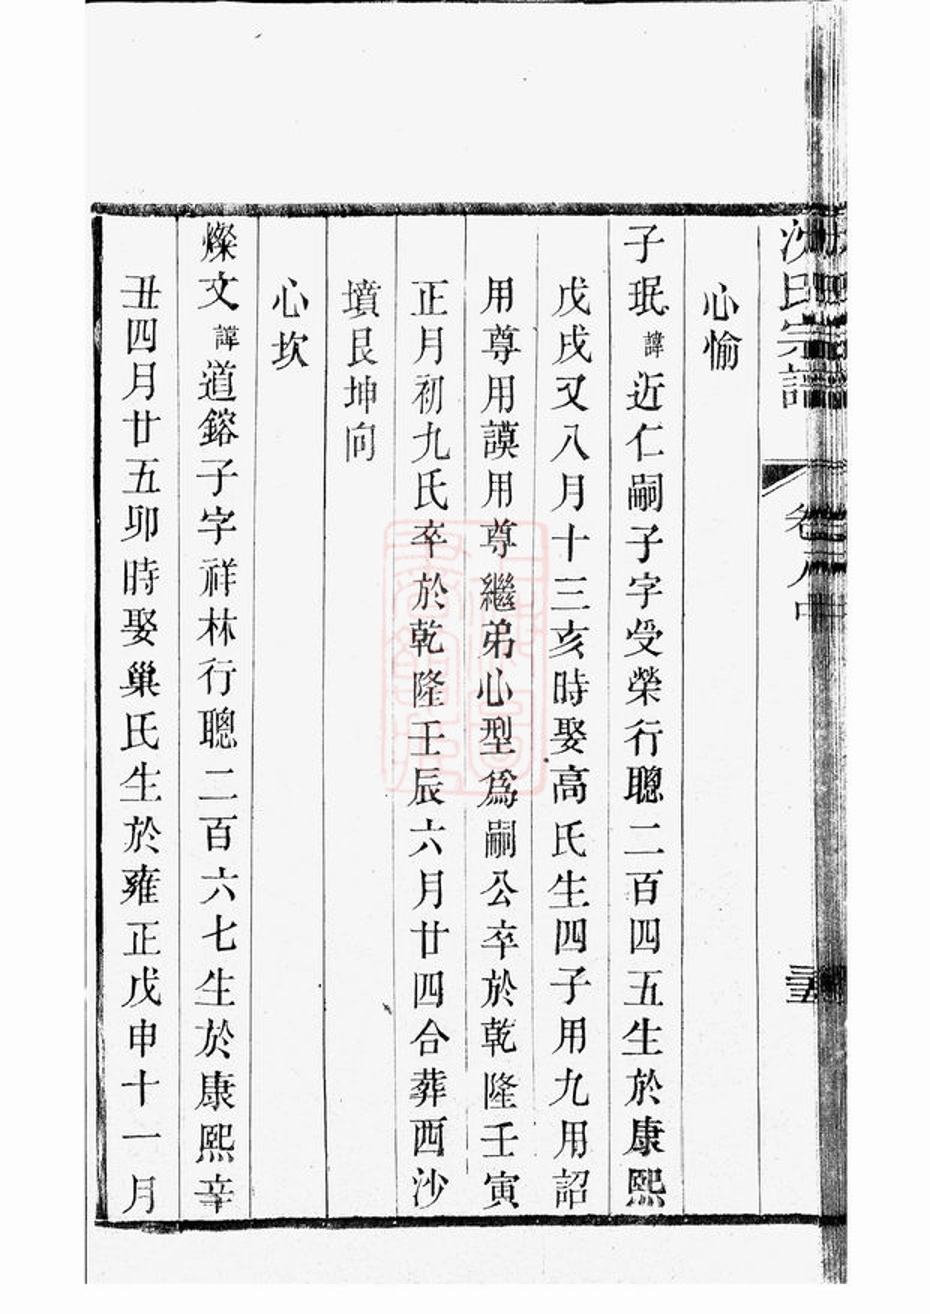 沈氏宗譜 卷八中 三五
心愉
子珉諱近仁嗣子字受榮行聰二百四五生於康熙
戊戌又八月十三亥時娶高氏生四子用九用詔
用尊用謨用尊繼弟心型爲嗣公卒於乾隆壬寅
正月初九氏卒於乾隆壬辰六月廿四合葬西沙
墳艮坤向
心坎
燦文諱道鎔子字祥林行聰二百六七生於康熙辛
丑四月廿五卯時娶巢氏生於雍正戊申十一月